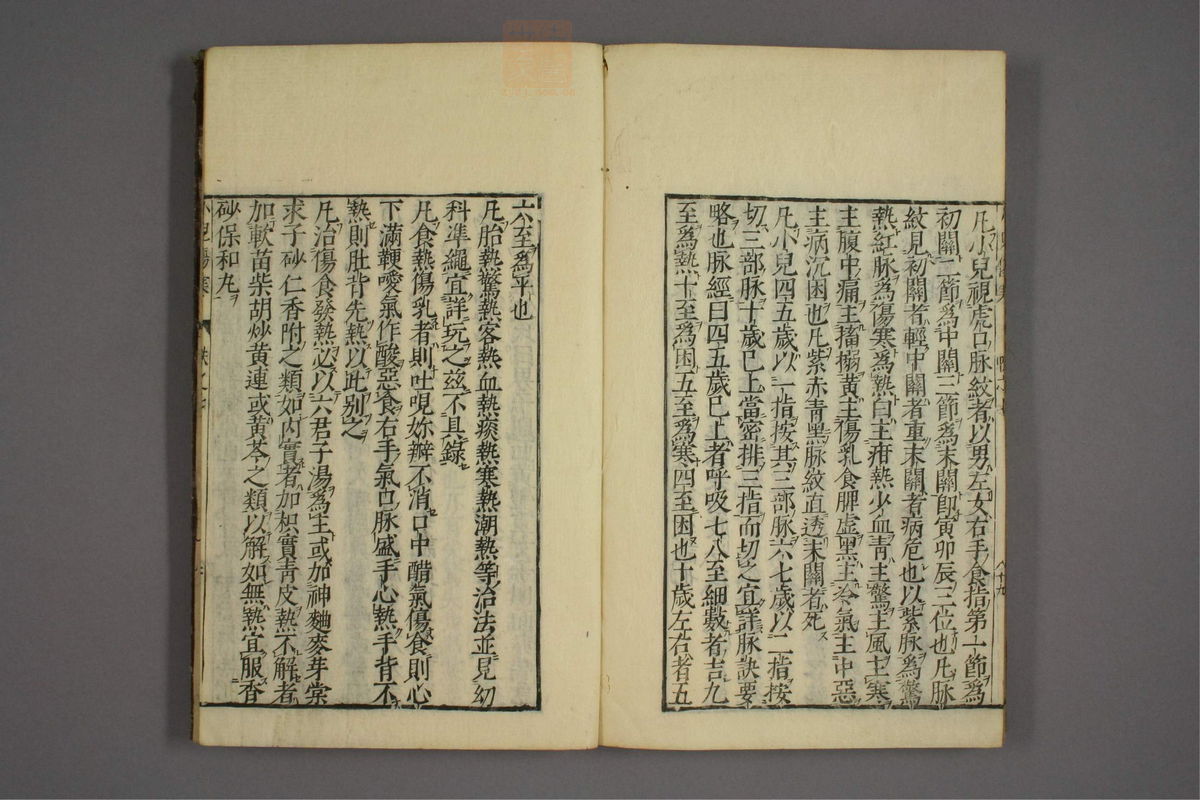 凡小兒視虎口脉紋者以男左女右手食指第一節爲
初關二節爲中關三節爲末關即寅卯辰三位也凡脉
紋見初關者輕中關者重末關者病危也以紫脉爲驚
熱紅脉爲傷寒爲熱白主疳熱少血青主驚主風主寒
主腹中痛主搐搦黄主傷乳食脾虚黑主冷氣主中惡
主病沉困也凡紫赤青黑脉紋直透末關者死
凡小兒四五歲以一指按其三部脉六七歲以二指按
切三部脉十歲已上當密排三指而切之宜詳脉訣要
略也脉經曰四五歲已上者呼吸七八至細數者吉九
至爲熱十至爲困五至爲寒四至困也十歲左右者五
六至爲平也
凡胎熱驚熱客熱血熱痰熱寒熱潮熱等治法並見幼
科準繩宜詳玩之兹不具録
凡食熱傷乳者則吐哯妳瓣不消口中醋氣傷食則心
下滿鞕噯氣作酸惡食右手氣口脉盛手心熱手背不
熱則肚背先熱以此別之
凡治傷食發熱必以六君子湯爲主或加神麯麥芽棠
求子砂仁香附之類如内實者加枳實青皮熱不解者
加軟苗柴胡炒黄連或黄芩之類以解如無熱宜服香
砂保和丸